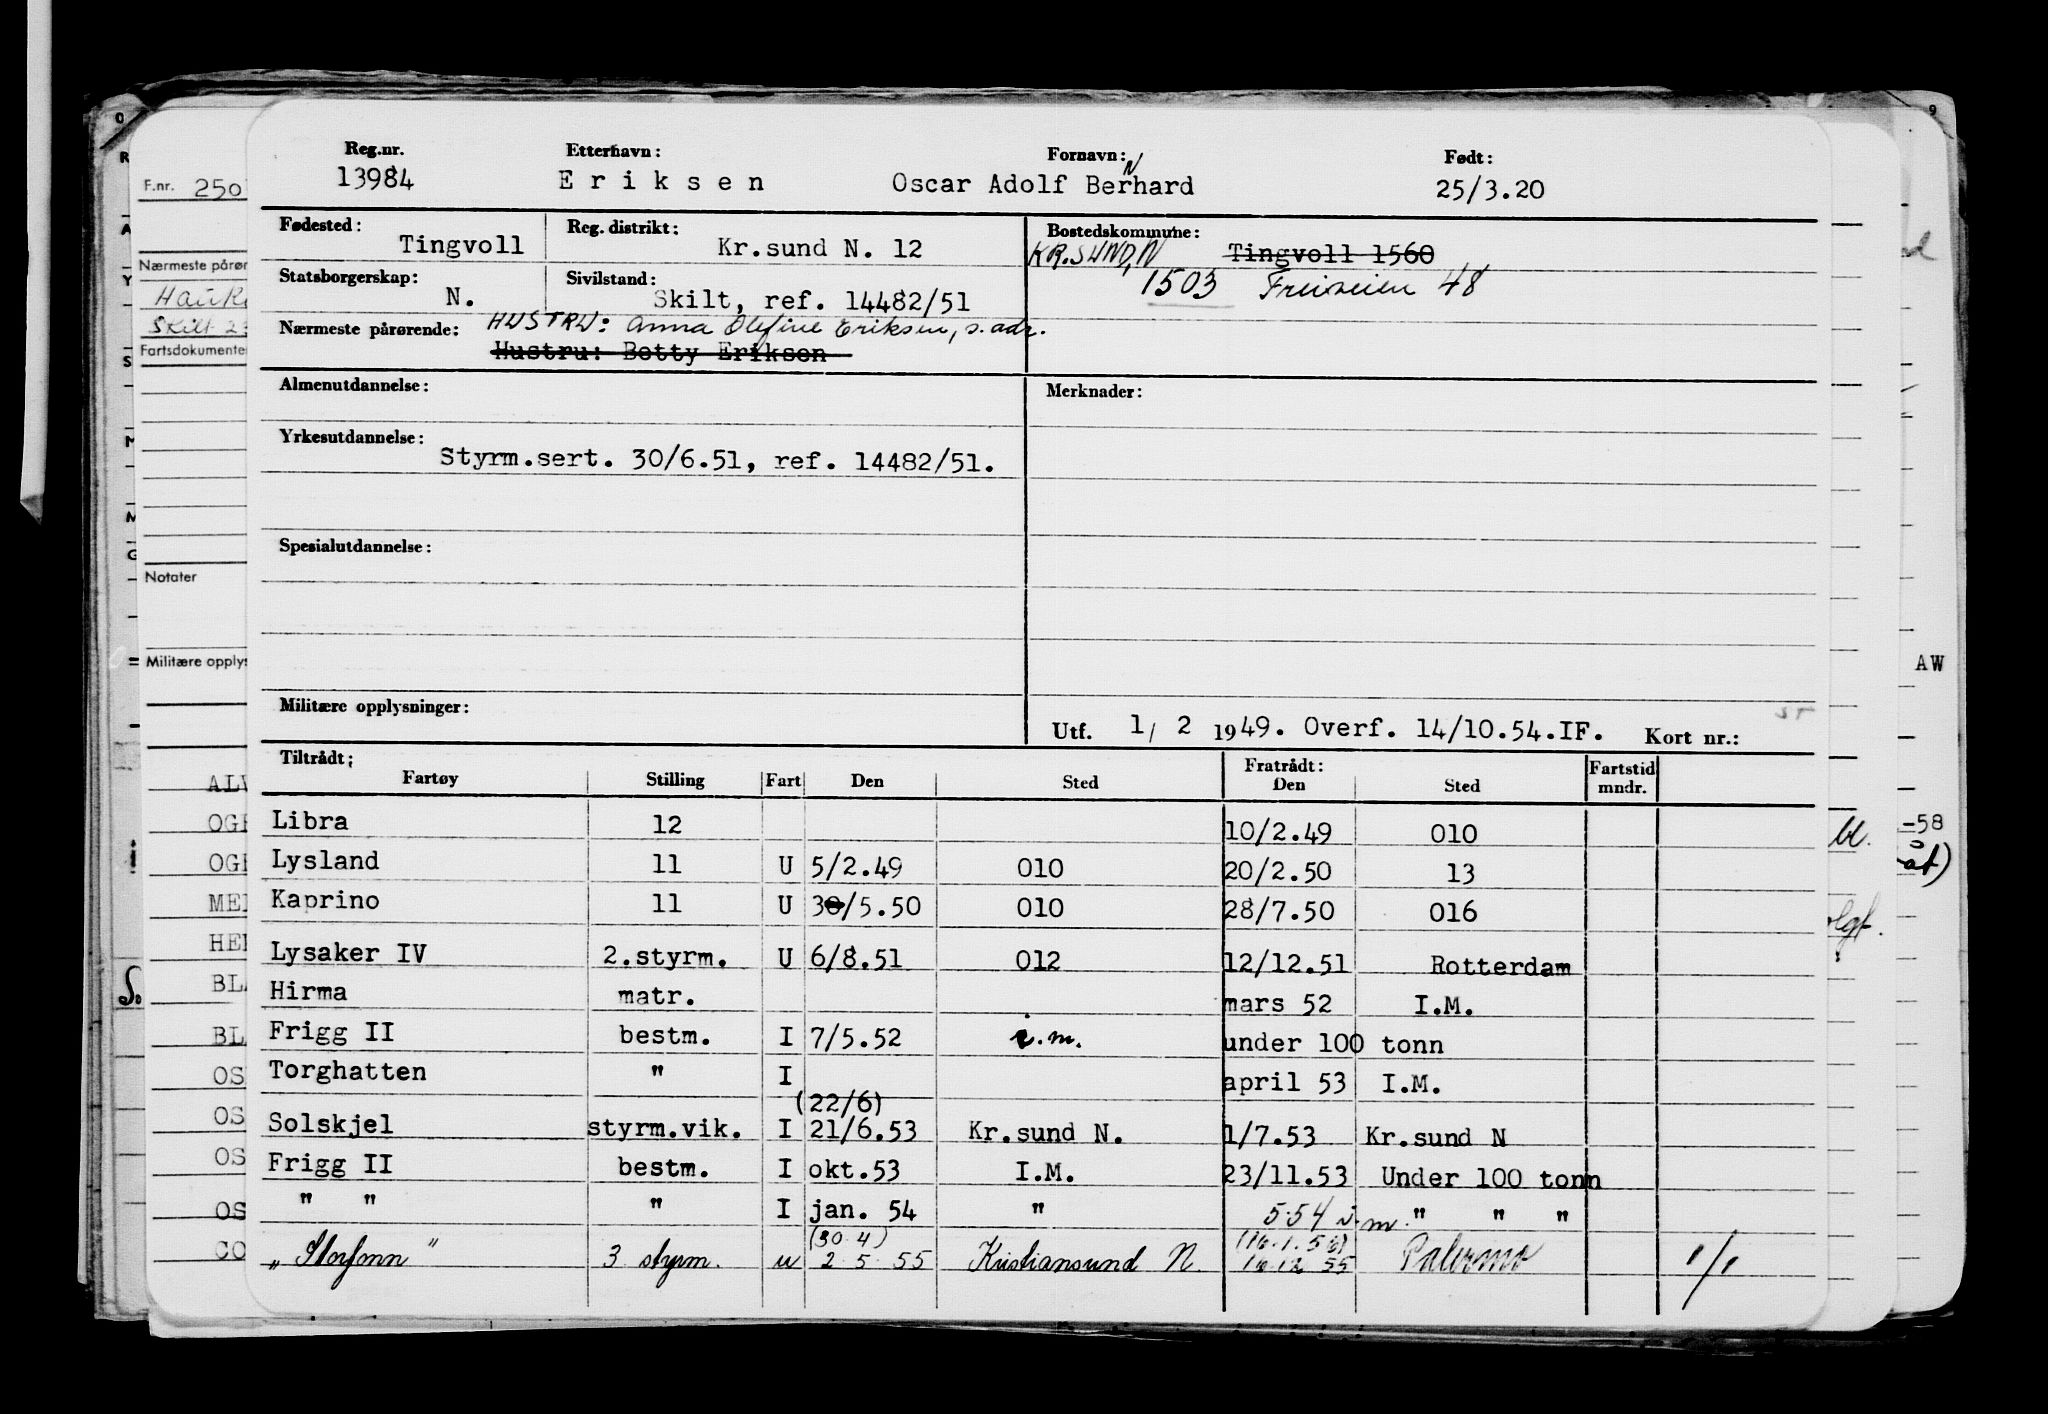 Reg.nr. Etterhavn: Fornavn: Født:
13984 Eriksen Oscar Adolf Berhard N 25/3.20
F.nr. 250
Fødested: Tingvoll Reg. distrikt: Kr.sund N. 12 Bostedskommune: Tingvoll 1560
KR.SUND,N
1503 Freiveien 48
Nærmeste pårør
Statsborgerskap: N. Sivilstand: Skilt, ref. 14482/51
Nærmeste pårørende: HUSTRU: Anna Olefine Eriksen, s. adr.
Hustru: Betty Eriksen
Fartsdokumenter
Almenutdannelse: Merknader:
Yrkesutdannelse: Styrm.sert. 30/6.51, ref. 14482/51.
Spesialutdannelse:
Notater
Militære opplys
AW
Militære opplysninger:
Utf. 1/ 2 1949. Overf. 14/10.54.IF. Kort nr.:
Tiltrådt: Fratrådt:
Fartøy Stilling Fart Den Sted Den Sted Fartstid mndr.
Libra 12 10/2.49 010
Lysland 11 U 5/2.49 010 20/2.50 13
Kaprino 11 U 30/5.50 010 28/7.50 016
Lysaker IV 2.styrm. U 6/8.51 012 12/12.51 Rotterdam
Hirma matr. mars 52 I.M.
Frigg II bestm. I 7/5.52 i.m. under 100 tonn
Torghatten " I april 53 I.M.
(22/6)
Solskjel styrm.vik. I 21/6.53 Kr.sund N. 1/7.53 Kr.sund N
Frigg II bestm. I okt.53 I.M. 23/11.53 Under 100 tonn
" " " I jan. 54 " 5.54 i.m. " " "
(30.4) (16.1.56)
3 styrm. u 2.5.55 Kristiansund N. 16.12.55 Palermo 1/1